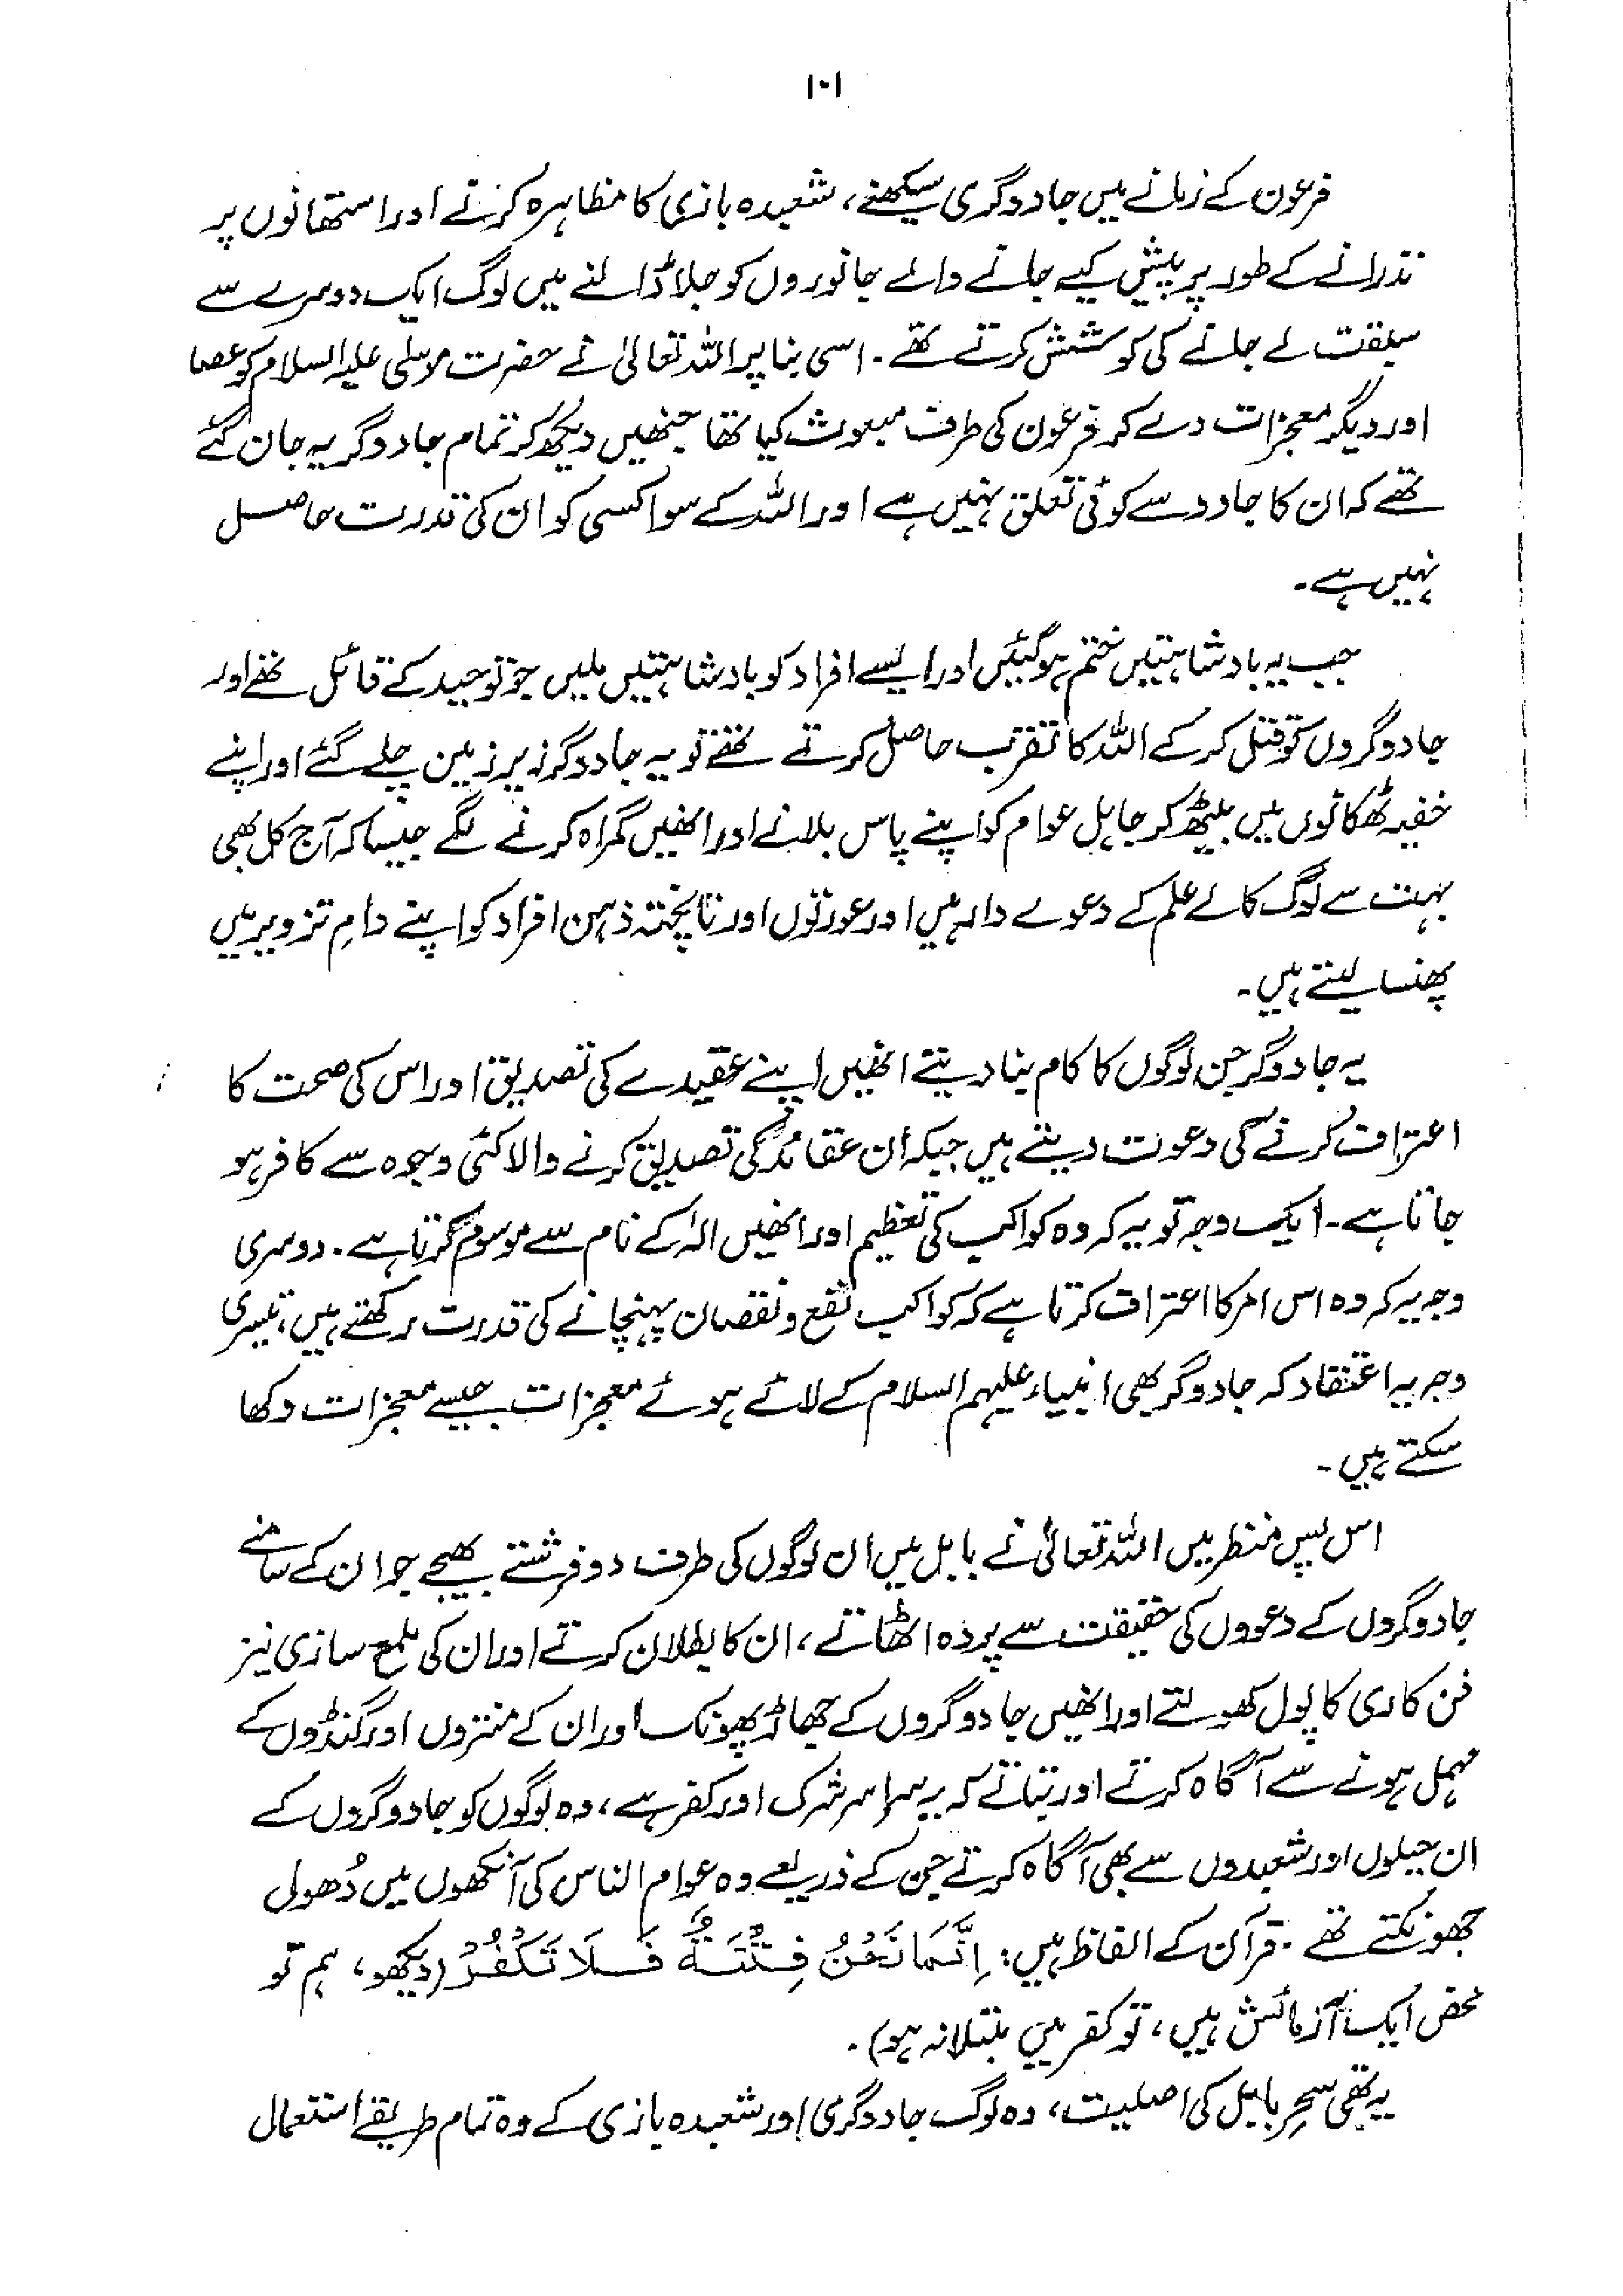 ۱۰۱
فرعون کے زمانے میں جادوگری سیکھنے، شعبدہ بازی کا مظاہرہ کرنے اور استھانوں پر
نذرانے کے طور پر پیش کیے جانے والے جانوروں کو جلا ڈالنے میں لوگ ایک دوسرے سے
سبقت لے جانے کی کوشش کرتے تھے۔ اسی بنا پر اللہ تعالیٰ نے حضرت موسٰی علیہ السلام کو عصا
اور دیگر معجزات دے کر فرعون کی طرف مبعوث کیا تھا جنھیں دیکھ کر تمام جادوگر یہ جان گئے
تھے کہ ان کا جادو سے کوئی تعلق نہیں ہے اور اللہ کے سوا کسی کو ان کی قدرت حاصل
نہیں ہے۔
جب یہ بادشاہتیں ختم ہوگئیں اور ایسے افراد کو بادشاہتیں ملیں جو توحید کے قائل تھے اور
جادوگروں کو قتل کر کے اللہ کا تقرب حاصل کرتے تھے تو یہ جادوگر زیر زمین چلے گئے اور اپنے
خفیہ ٹھکانوں میں بیٹھ کر جاہل عوام کو اپنے پاس بلانے اور انھیں گمراہ کرنے لگے جیسا کہ آج کل بھی
بہت سے لوگ کالے علم کے دعوے دار ہیں اور عورتوں اور ناپختہ ذہن افراد کو اپنے دامِ تزویر میں
پھنسا لیتے ہیں۔
یہ جادوگر جن لوگوں کا کام بنا دیتے انھیں اپنے عقیدے کی تصدیق اور اس کی صحت کا
اعتراف کرنے کی دعوت دیتے ہیں جبکہ ان عقائد کی تصدیق کرنے والا کئی وجوہ سے کافر ہو
جاتا ہے۔ ایک وجہ تو یہ کہ وہ کواکب کی تعظیم اور انھیں الٰہ کے نام سے موسوم کرتا ہے۔ دوسری
وجہ یہ کہ وہ اس امر کا اعتراف کرتا ہے کہ کواکب نفع و نقصان پہنچانے کی قدرت رکھتے ہیں، تیسری
وجہ یہ اعتقاد کہ جادوگر بھی انبیاء علیہم السلام کے لائے ہوئے معجزات جیسے معجزات دکھا
سکتے ہیں۔
اس پس منظر میں اللہ تعالیٰ نے بابل میں ان لوگوں کی طرف دو فرشتے بھیجے جو ان کے سامنے
جادوگروں کے دعووں کی حقیقت سے پردہ اٹھاتے، ان کا بطلان کرتے اور ان کی ملمع سازی نیز
فن کاری کا پول کھولتے اور انھیں جادوگروں کے جھاڑ پھونک اور ان کے منتروں اور گنڈوں کے
مہمل ہونے سے آگاہ کرتے اور بتاتے کہ یہ سراسر شرک اور کفر ہے، وہ لوگوں کو جادوگروں کے
ان حیلوں اور شعبدوں سے بھی آگاہ کرتے جن کے ذریعے وہ عوام الناس کی آنکھوں میں دُھول
جھونکتے تھے۔ قرآن کے الفاظ ہیں: اِنَّمَا نَحْنُ فِتْنَةٌ فَلَا تَكْفُرْ (دیکھو، ہم تو
محض ایک آزمائش ہیں، تو کفر میں مبتلا نہ ہو)۔
یہ تھی سحرِ بابل کی اصلیت، وہ لوگ جادوگری اور شعبدہ بازی کے وہ تمام طریقے استعمال